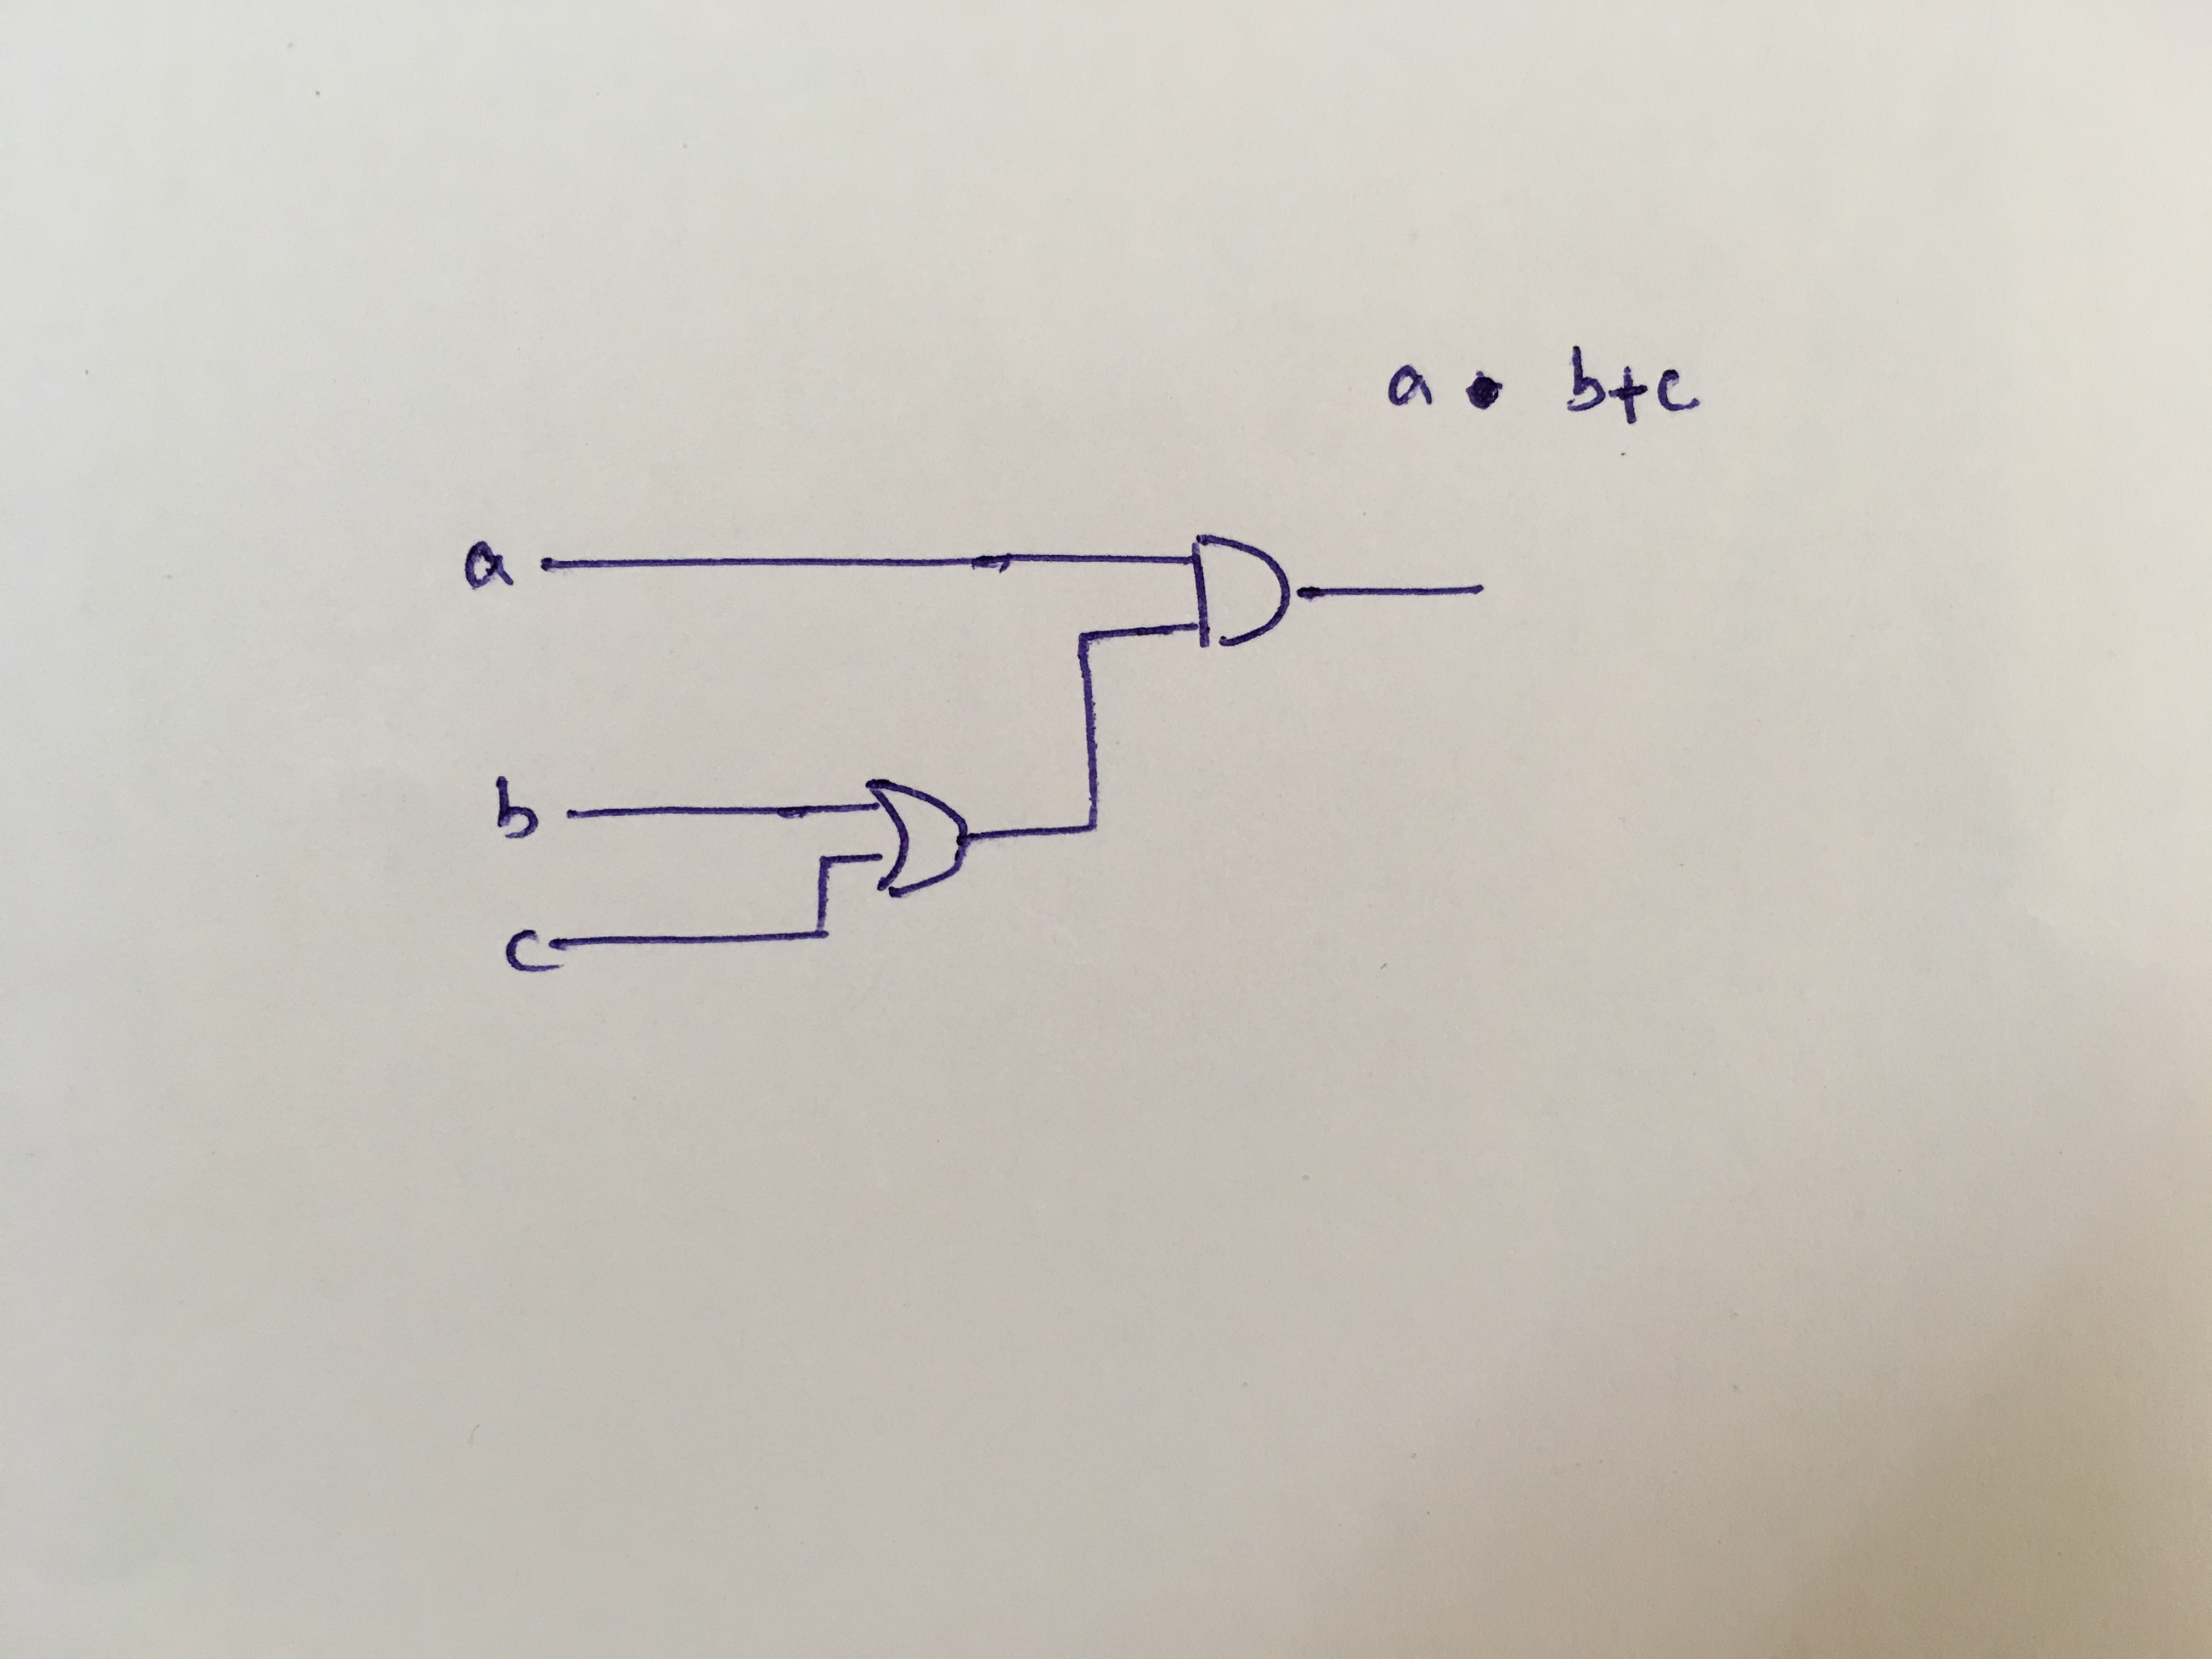 a
b
c
a • b+c